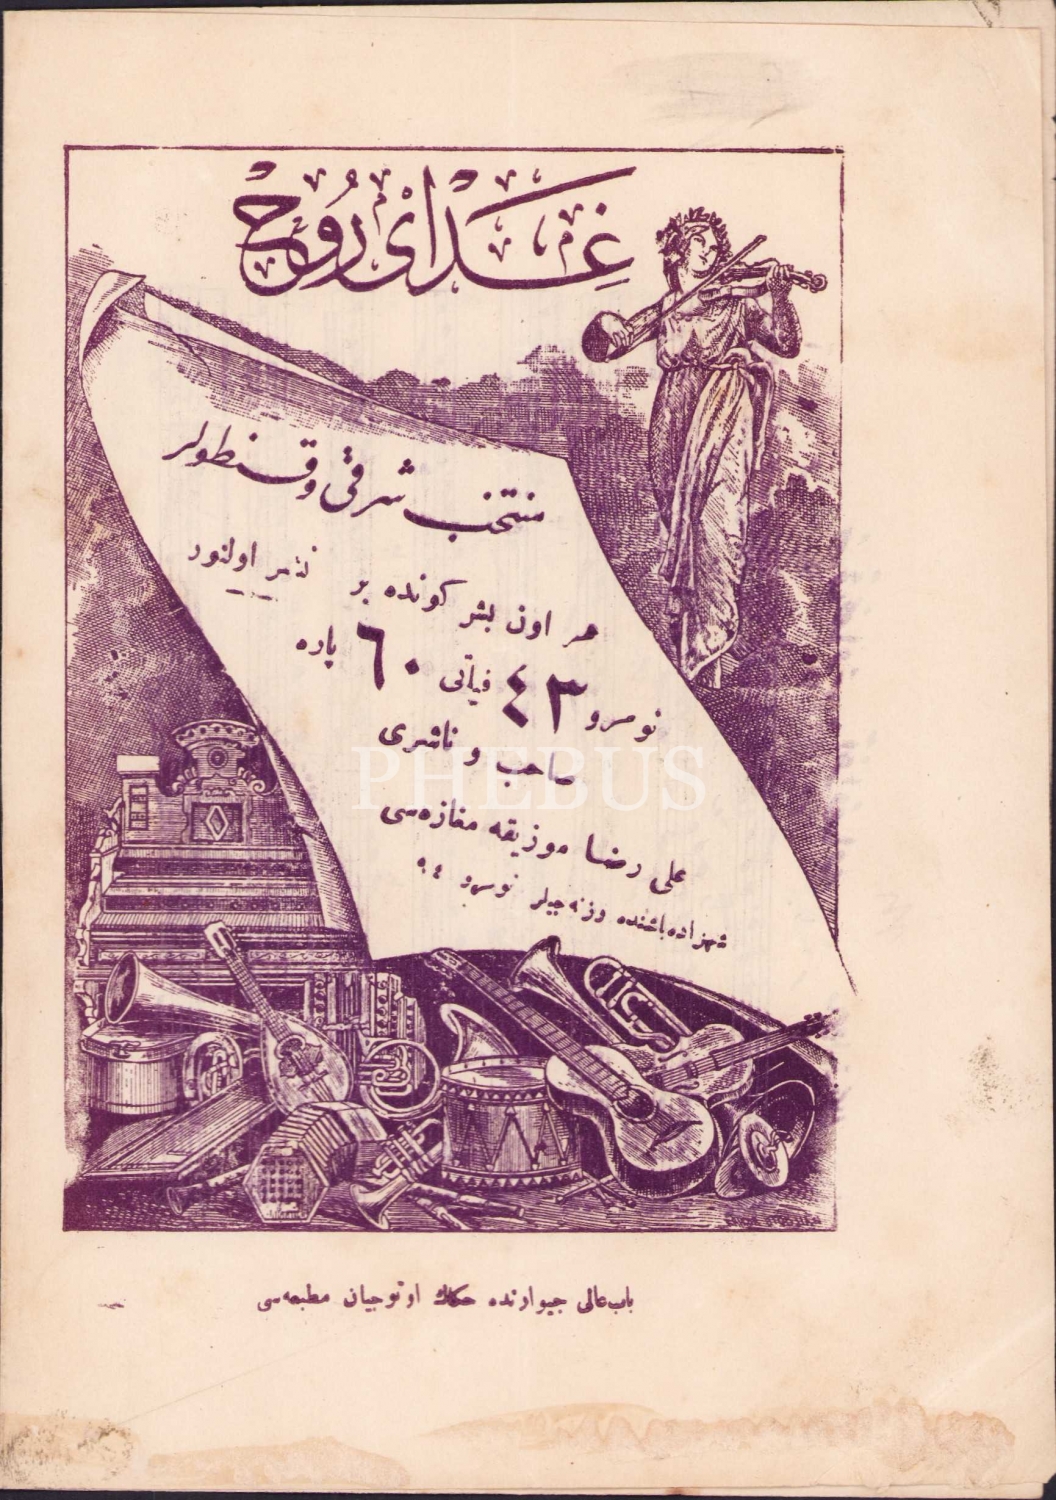 غدای روح
منتخب شرقی و قنطولر
هر اون بش كونده بر نشر اولنور
نومرو ٤٣ فیآتی ٦٠ پاره
صاحب و ناشری
PHEBUS
علی رضا موزیقه مغازه‌سی
شهزاده‌باشنده وزنه‌جیلر نومرو ٩٤
باب‌عالی جیوارنده حكاك اوتوجیان مطبعه‌سی